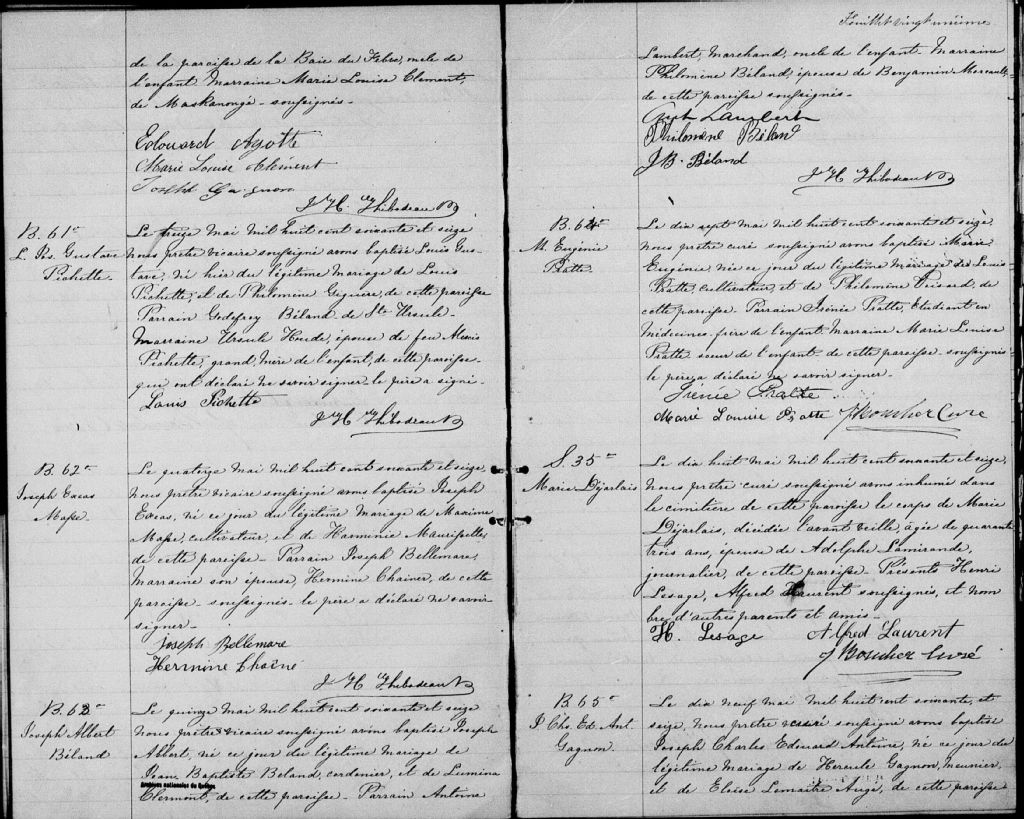 de la paroisse de la Baie du Febvre, oncle de
l'enfant. Marraine Marie Louise Clement,
de Maskanongé - soussignés -
Edouard Ayotte
Marie Louise Clément
Joseph Gagnon
J H Thibodeau
B. 61e
L. Gustave
Pichette.
Le treize mai mil huit cent soixante et seize
nous prêtre vicaire soussigné avons baptisé Louis Gus-
tave, né hier du légitime mariage de Louis
Pichette, et de Philomène de cette paroisse
Parrain Godefroy Béland de St Ursule.
Marraine Ursule Houde, épouse de feu Alexis
Pichette, grand'mère de l'enfant, de cette paroisse -
qui ont déclaré ne savoir signer le père a signé -
Louis Pichette
J H Thibodeau
B. 62e
Joseph
Masse.
Le quatorze mai mil huit cent soixante et seize,
nous prêtre vicaire soussigné avons baptisé Joseph
né ce jour du légitime mariage de Maxime
Masse, cultivateur, et de Harminie
de cette paroisse - Parrain Joseph Bellemare,
marraine son épouse, Hermine de cette
paroisse - soussignés - le père a déclaré ne savoir
signer -
Joseph Bellemare
Hermine Chaîné
J H Thibodeau
B. 63e
Joseph Albert
Béland
Le quinze mai mil huit cent soixante et seize
nous prêtre vicaire soussigné avons baptisé Joseph
Albert, né ce jour du légitime mariage de
Jean Baptiste Beland, cordonier, et de Lumina
Archives nationales du Québec
Clermont, de cette paroisse - Parrain Antoine
Feuillet vingt unième
Lambert, Marchand, oncle de l'enfant. Marraine
Philomène Béland, épouse de Benjamin
de cette paroisse soussignés -
Lambert
Philomène Béland
J B. Béland
J H Thibodeau
B. 64e
M. Eugénie
Piatte.
Le dix sept mai mil huit cent soixante et seize
nous prêtre curé soussigné avons baptisé Marie
Eugénie, née ce jour du légitime mariage de Louis
Piatte, cultivateur, et de Philomène de
cette paroisse. Parrain Irénée Piatte, Etudiant en
médecine, frère de l'enfant. Marraine Marie Louise
Piatte sœur de l'enfant - de cette paroisse - soussignés
le père a déclaré ne savoir signer -
Irénée
Marie Louise J Boucher Curé
S. 35e
Marie Déjarlais
Le dix huit mai mil huit cent soixante et seize,
nous prêtre curé soussigné avons inhumé dans
le cimitière de cette paroisse le corps de Marie
Déjarlais, décédée l'avant veille, âgée de quarante
trois ans, épouse de Adolphe Lamirande,
journalier, de cette paroisse - Présents Henri
Lesage, Alfred Laurent soussignés, et nom
bre d'autres parents et amis -
H. Lesage Alfred Laurent
J Boucher Curé
B. 65e
J. Chs. Ed. Ant.
Gagnon.
Le dix neuf mai mil huit cent soixante, et
seize, nous prêtre curé soussigné avons baptisé
Joseph Charles Edouard Antoine, né ce jour du
légitime mariage de Hercule Gagnon, meunier,
et de Eloïse Lemaître Augé, de cette paroisse